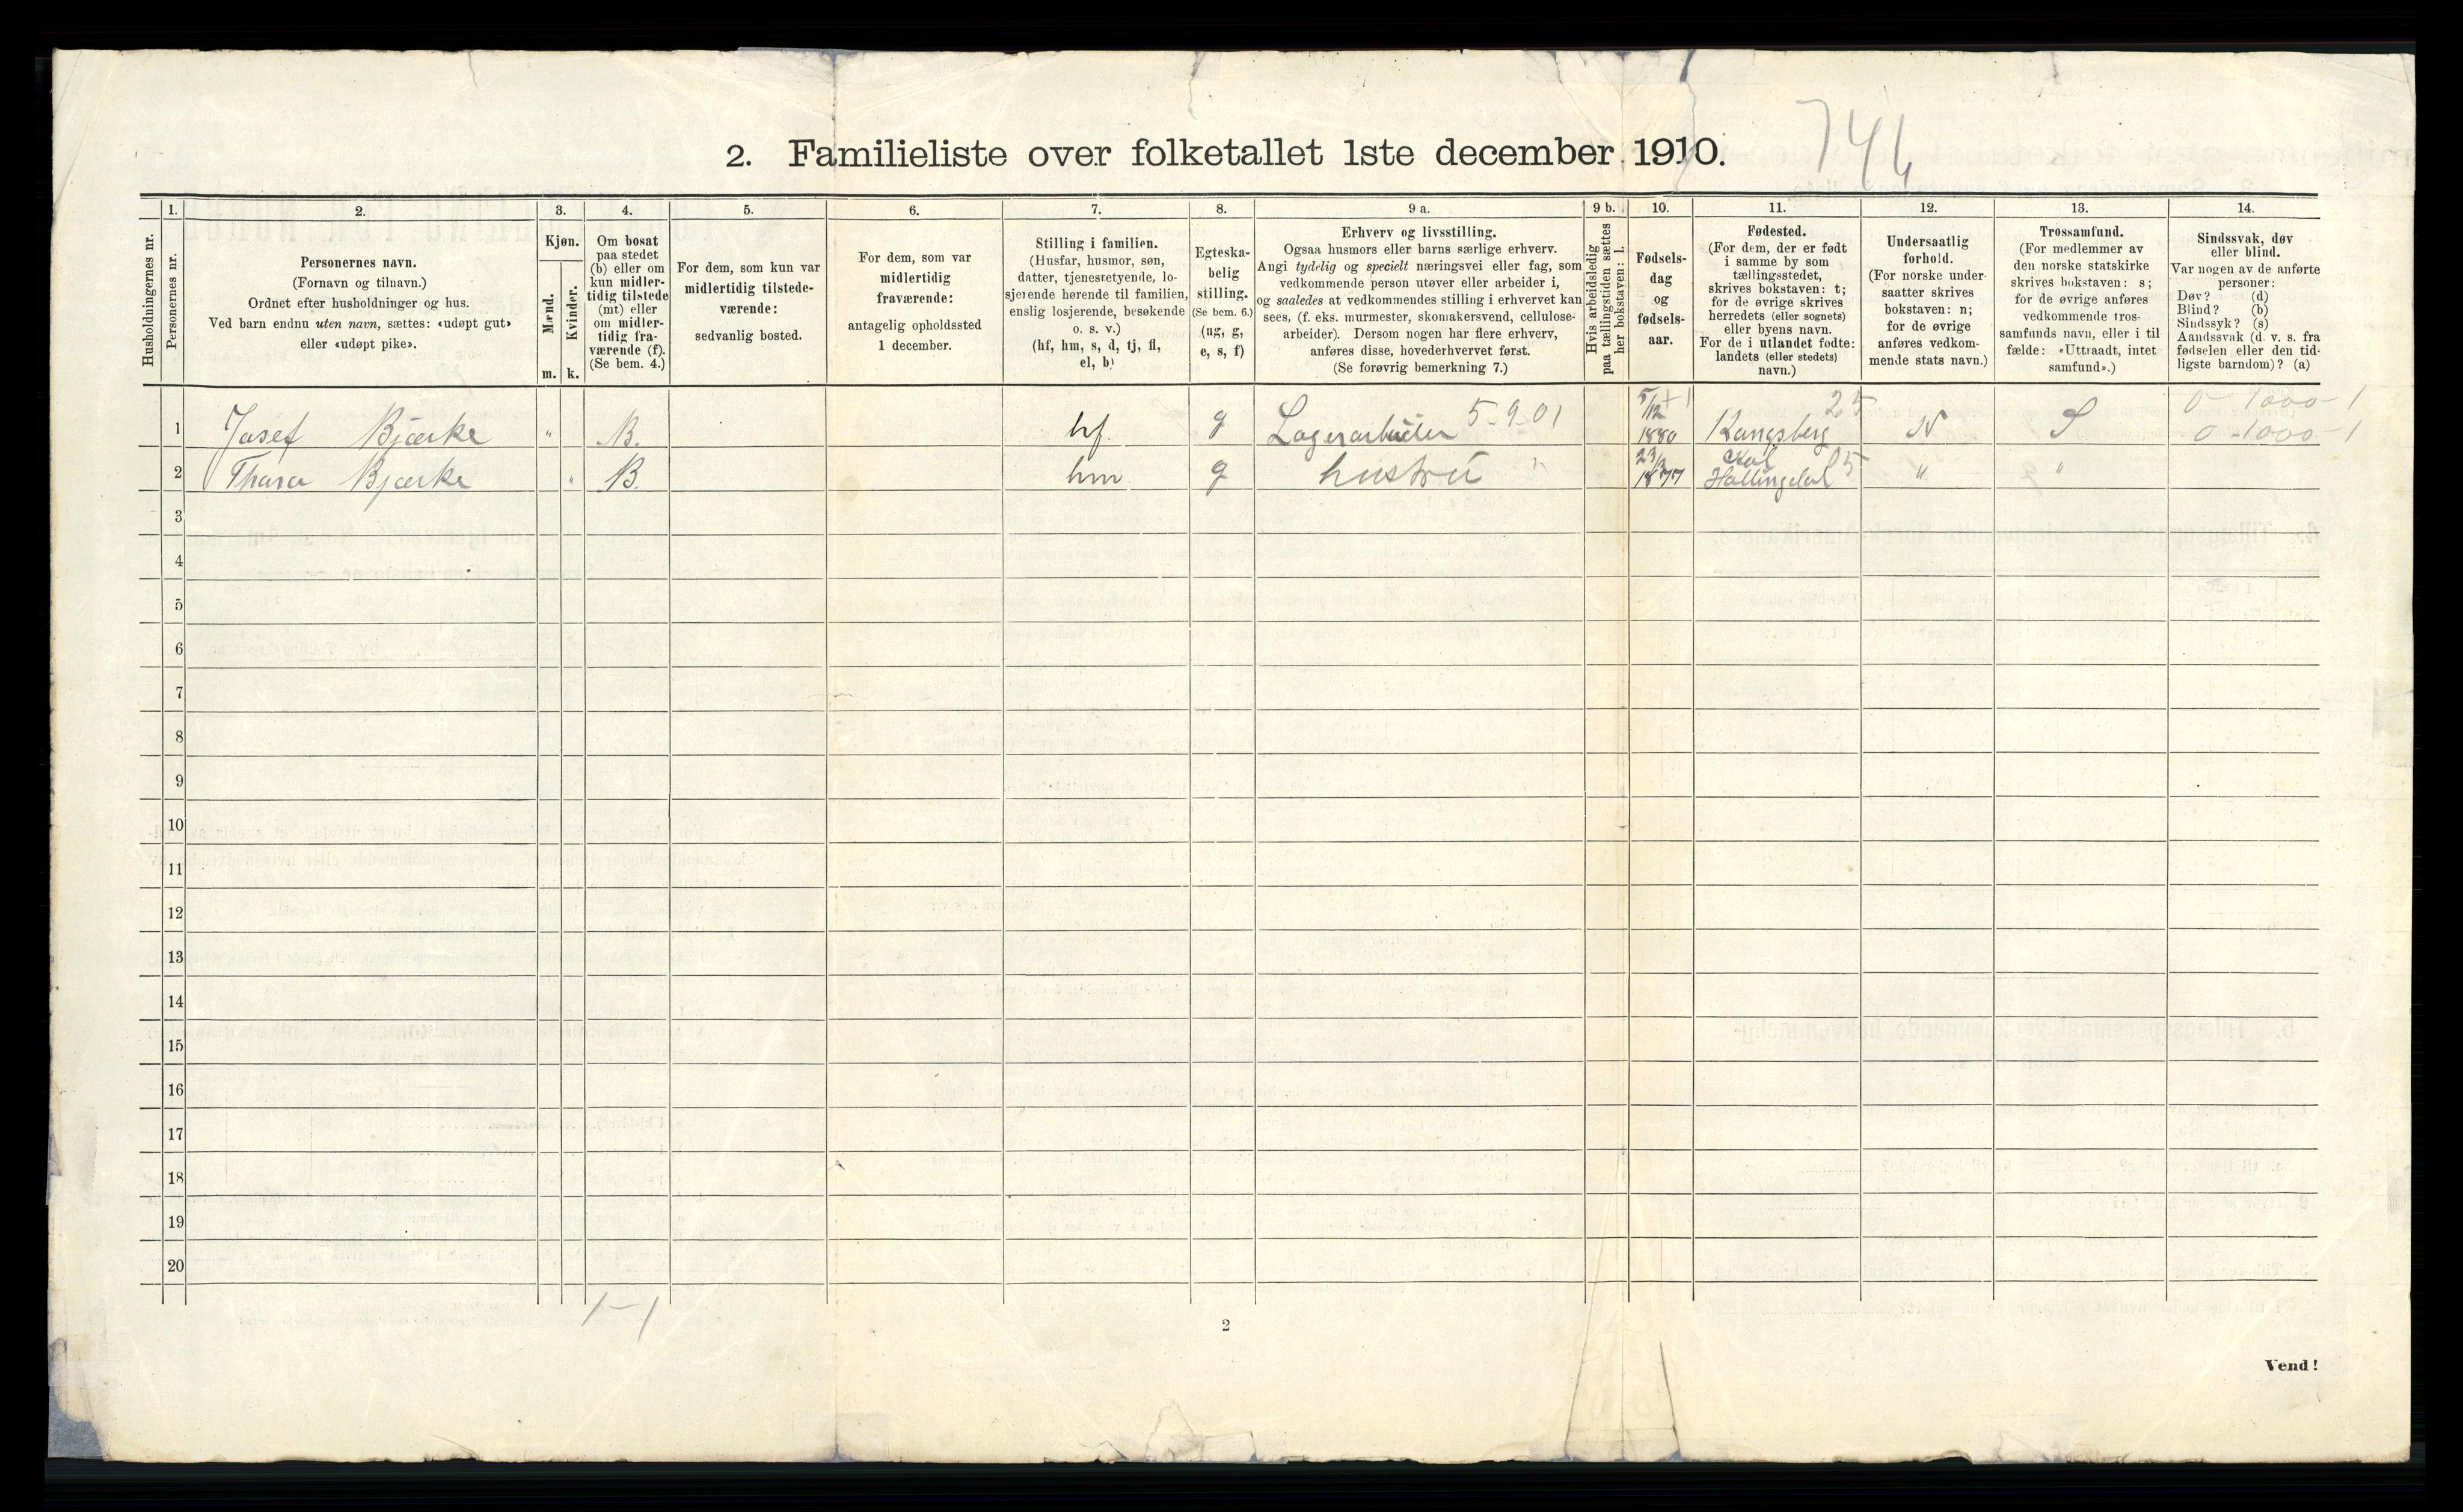 746
2. Familieliste over folketallet 1ste december 1910.
Husholdningernes nr.
1.
Personernes nr.
2.
Personernes navn.
(Fornavn og tilnavn.)
Ordnet efter husholdninger og hus.
Ved barn endnu uten navn, sættes: «udøpt gut»
eller «udøpt pike».
3.
Kjøn.
Mænd.
Kvinder.
m. k.
4.
Om bosat
paa stedet
(b) eller om
kun midler-
tidig tilstede
(mt) eller
om midler-
tidig fra-
værende (f).
(Se bem. 4.)
5.
For dem, som kun var
midlertidig tilstede-
værende:
sedvanlig bosted.
6.
For dem, som var
midlertidig
fraværende:
antagelig opholdssted
1 december.
7.
Stilling i familien.
(Husfar, husmor, søn,
datter, tjenestetyende, lo-
sjerende hørende til familien,
enslig losjerende, besøkende
o. s. v.)
(hf, hm, s, d, tj, fl,
el, b)
8.
Egteska-
belig
stilling.
(Se bem. 6.)
(ug, g,
e, s, f)
9 a.
Erhverv og livsstilling.
Ogsaa husmors eller barns særlige erhverv.
Angi tydelig og specielt næringsvei eller fag, som
vedkommende person utøver eller arbeider i,
og saaledes at vedkommendes stilling i erhvervet kan
sees, (f. eks. murmester, skomakersvend, cellulose-
arbeider). Dersom nogen har flere erhverv,
anføres disse, hovederhvervet først.
(Se forøvrig bemerkning 7.)
9 b.
Hvis arbeidsledig
paa tællingstiden sættes
her bokstaven: l.
10.
Fødsels-
dag
og
fødsels-
aar.
11.
Fødested.
(For dem, der er født
i samme by som
tællingsstedet,
skrives bokstaven: t;
for de øvrige skrives
herredets (eller sognets)
eller byens navn.
For de i utlandet fødte:
landets (eller stedets)
navn.)
12.
Undersaatlig
forhold.
(For norske under-
saatter skrives
bokstaven: n;
for de øvrige
anføres vedkom-
mende stats navn.)
13.
Trossamfund.
(For medlemmer av
den norske statskirke
skrives bokstaven: s;
for de øvrige anføres
vedkommende tros-
samfunds navn, eller i til
fælde: «Uttraadt, intet
samfund».)
14.
Sindssvak, døv
eller blind.
Var nogen av de anførte
personer:
Døv? (d)
Blind? (b)
Sindssyk? (s)
Aandssvak (d. v. s. fra
fødselen eller den tid-
ligste barndom)? (a)
1 Josef Bjærke " B. hf. g Lagerarbeider 5-9-01 5/12 1880 Kongsberg 25 N S 0-1000-1
0-1000-1
2 Thara Bjærke " B. hm g hustru " 23/3 1877 Hallingdal 05 " "
3
4
5
6
7
8
9
10
11
12
13
14
15
16
17
18
19
20
1-1
2
Vend!